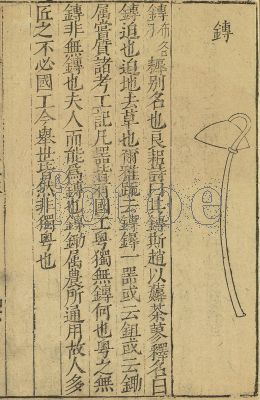 鎛
鎛布各切耨別名也良耜詩曰其鎛斯趙以薅荼蓼釋名曰
鎛迫也迫地去草也爾雅疏云鎛耨一器或云鉏或云鋤
屬嘗質諸考工記凡器皆有國工粵獨無鎛何也粵之無
鎛非無鎛也夫人而能為鎛也鎛鋤屬農所通用故人多
匠之不必國工今舉世皆然非獨粵也